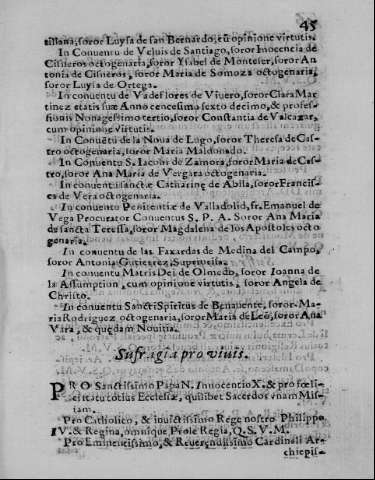 45
tissana, soror Luysa de san Bernardo, cũ opinione virtutis.
In Conuentu de Veluis de Santiago, soror Inocencia de
Cisneros octogenaria, soror Ysabel de Monteser, soror An
tonia de Cisneros, soror Maria de Somoza octogenaria,
soror Luysa de Ortega.
In conuentu de Vadeflores de Viuero, soror Clara Mar
tinez etatis suæ Anno centesimo sexto decimo, & profes-
sionis Nonagessimo tertio, soror Constantia de Valcazar,
cum opinione virtutis.
In Conuẽtu de la Noua de Lugo, soror Theresa de Cas-
tro octogenaria, soror Maria Maldonado.
In Conuentu S. Iacobi de Zamora, soror Maria de Cas-
tro, soror Ana Maria de Vergara octogenaria.
In conuentu sanctæ Catharinę de Abila, soror Francis-
ca de Vera octogenaria.
In conuento Penitentiæ de Valladolid, fr. Emanuel de
Vega Procurator Conuentus S. P. A. Soror Ana Maria
de sancta Teressa, soror Magdalena de los Apostoles octo
genaria.
In conuentu de las Faxardas de Medina del Campo,
soror Antonia Gutierrez, Supprioissa.
In conuentu Matris Dei de Olmedo, soror Ioanna de
la Assumption, cum opinione virtutis, soror Angela de
Christo.
In conuentu Sancti Spiritus de Benauente, soror Ma-
ria Rodriguez octogenaria, soror Maria de Leõ, soror Ana
Vara, & quędam Nouitia.
Sufragia pro viuis.
PRO Sanctissimo Papa N. Innocentio X. & pro fœli-
ci statu totius Ecclesiæ, quilibet Sacerdos vnam Mis-
sam.
Pro Catholico, & inuictissimo Rege nostro Philippo
IV. & Regina, omnique Prole Regia, Q. S. V. M.
Pro Eminentissimo, & Reuerendissimo Cardinali Ar-
chiepis-